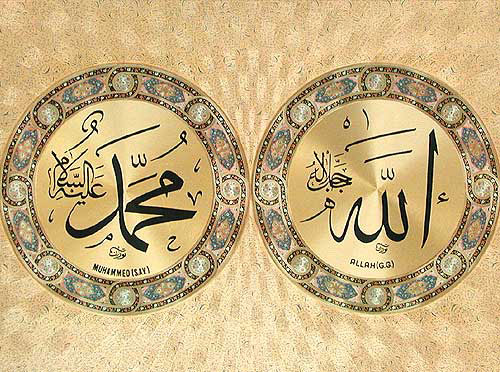 الله
جل جلاله
ALLAH(G.G)
محمد
عليه السلام
MUHAMMED(S.A.V)